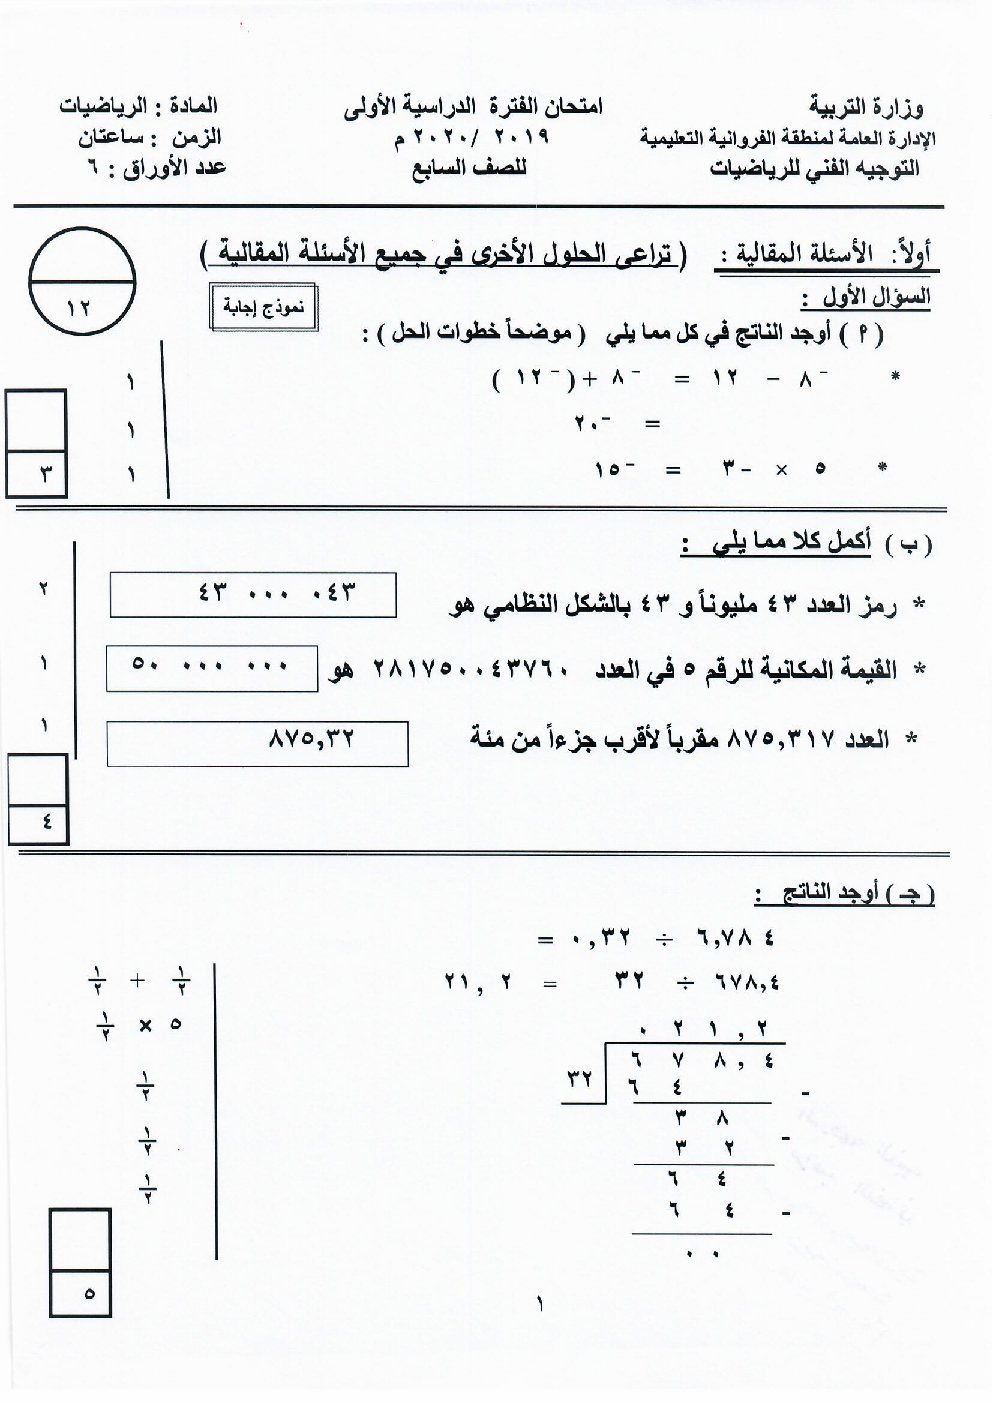 وزارة التربية
امتحان الفترة الدراسية الأولى
المادة : الرياضيات
الإدارة العامة لمنطقة الفروانية التعليمية
٢٠١٩ / ٢٠٢٠ م
الزمن : ساعتان
التوجيه الفني للرياضيات
للصف السابع
عدد الأوراق : ٦
أولاً: الأسئلة المقالية : ( تراعى الحلول الأخرى في جميع الأسئلة المقالية )
السؤال الأول :
نموذج إجابة
١٢
( م ) أوجد الناتج في كل مما يلي ( موضحاً خطوات الحل ) :
* ⁻٨ – ١٢ = ⁻٨ + ( ⁻١٢ )
١
= ⁻٢٠
١
* ٥ × –٣ = ⁻١٥
١
٣
( ب ) أكمل كلا مما يلي :
* رمز العدد ٤٣ مليوناً و ٤٣ بالشكل النظامي هو ٤٣ ٠٠٠ ٠٤٣
٢
* القيمة المكانية للرقم ٥ في العدد ٢٨١٧٥٠٠٤٣٧٦٠ هو ٥٠ ٠٠٠ ٠٠٠
١
* العدد ٨٧٥,٣١٧ مقرباً لأقرب جزءاً من مئة ٨٧٥,٣٢
١
٤
( جـ ) أوجد الناتج :
٦,٧٨٤ ÷ ٠,٣٢ =
٦٧٨,٤ ÷ ٣٢ = ٢١,٢
١/٢ + ١/٢
٠ ٢ ١ , ٢
٥ × ١/٢
٣٢ ٦ ٧ ٨ , ٤
٦ ٤ -
١/٢
٣ ٨
٣ ٢ -
١/٢
٦ ٤
١/٢
٦ ٤ -
٠ ٠
٥
١